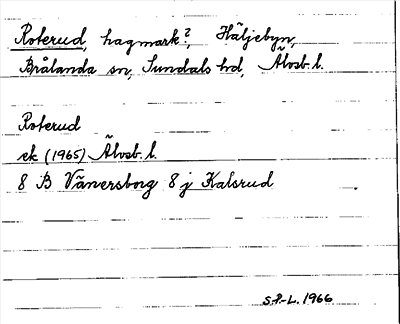 Roterud, hagmark?, Häljebyn,
Brålanda sn, Sundals hd, Älvsb. l.
Roterud
ek (1965) Älvsb. l.
8 B Vänersborg 8 j Kalsrud
S.P-L. 1966